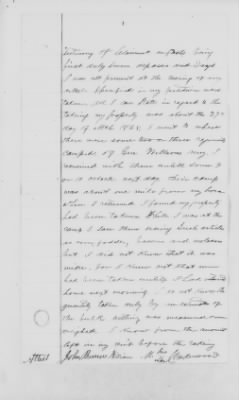 1
Testimony of Claimant who being
first duly sworn deposes and says
I was not present at the taking of any
articles specified in my petition when
taken. All I can state in regard to the
taking of my property was about the 27th
day of 1864 I went to where
there were some two or three regiments
camped of Gen
remained with them until some 9
or 10 o'clock next day. Their camp
was about one mile from my home
when I returned I found my property
had been taken. While I was at the
camp I saw them using such articles
as corn fodder, bacon and molasses
but I did not know that it was
mine, for I knew not that mine
had been taken until I got
home next morning. I do not know the
quantity taken only by an estimate of
the bulk nothing was measured or
weighed. I know from the amount
left on my visit before the taking
Attest John his